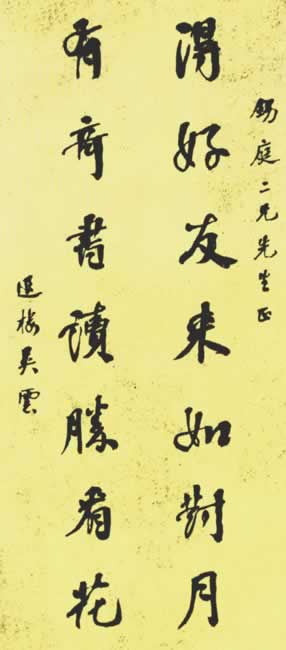 錫庭二兄先生正
得好友来如對月
有奇書讀勝看花
退樓吳雲